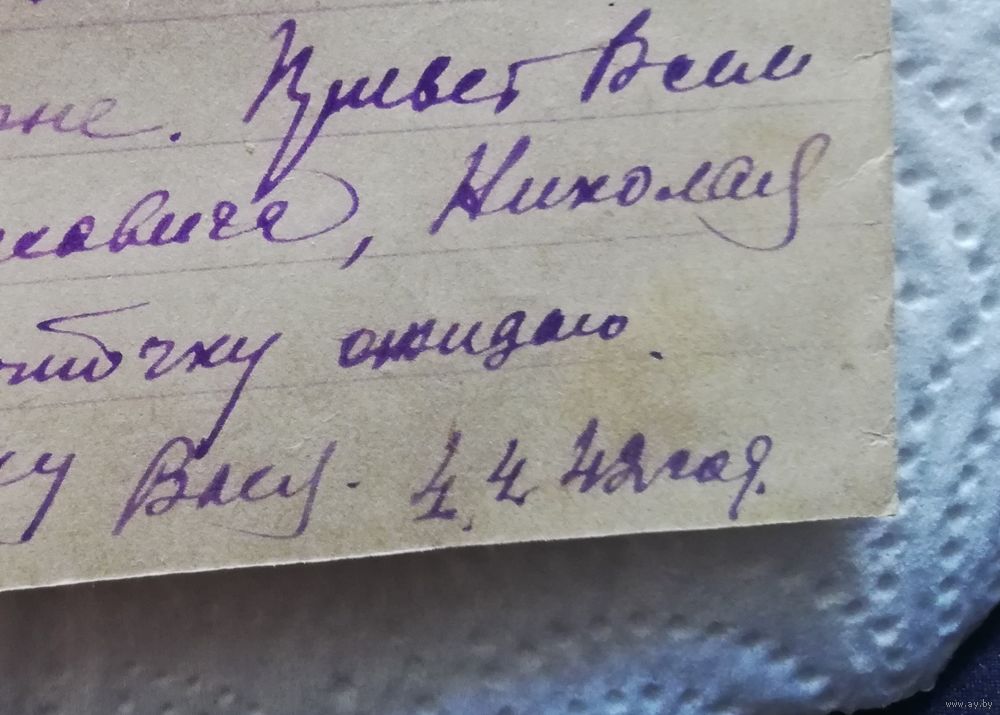 не. Привет Всем
овича, Николая
точку ожидаю.
ку Васу. 4. 4 42 год.
www.ay.by